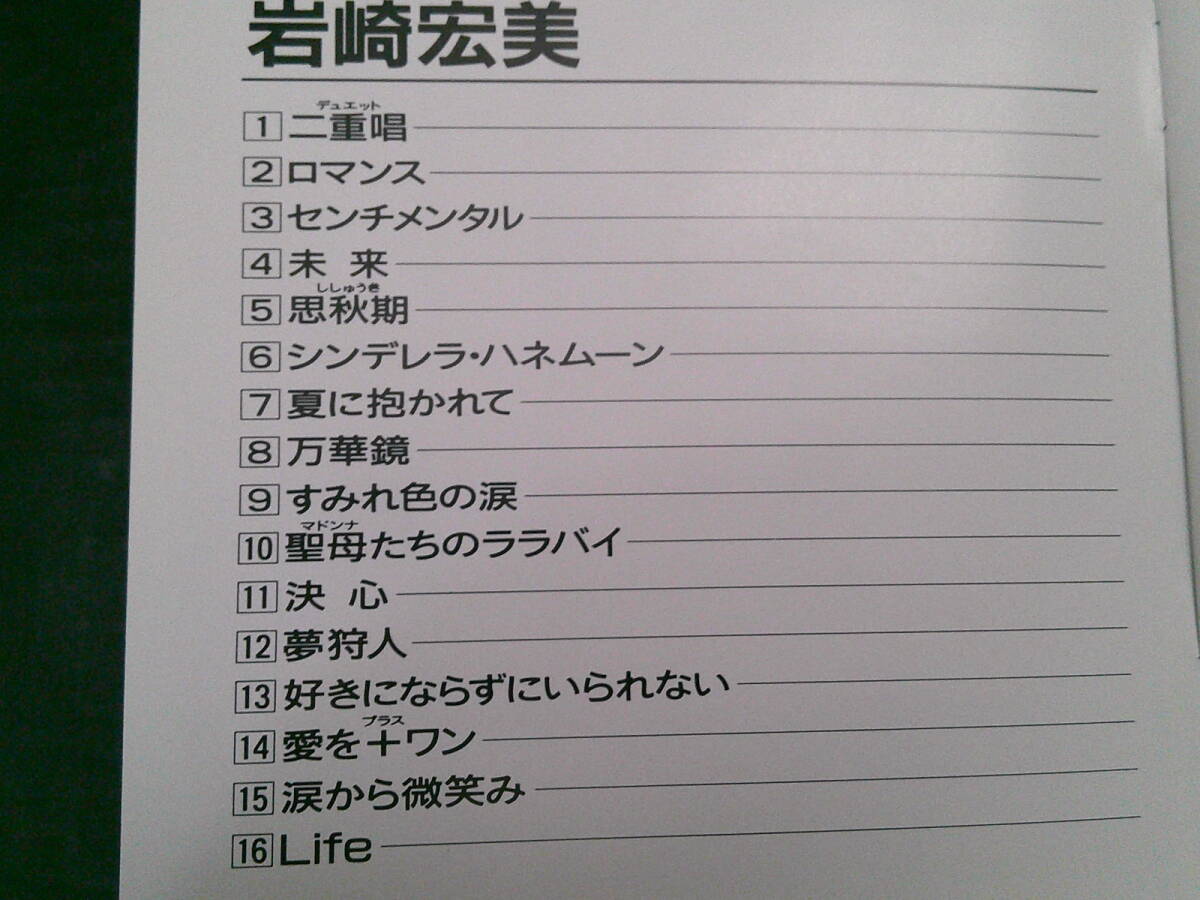 岩崎宏美
デュエット
1 二重唱
2 ロマンス
3 センチメンタル
4 未 来
ししゅうき
5 思秋期
6 シンデレラ・ハネムーン
7 夏に抱かれて
8 万華鏡
9 すみれ色の涙
マドンナ
10 聖母たちのララバイ
11 決 心
12 夢狩人
13 好きにならずにいられない
プラス
14 愛を＋ワン
15 涙から微笑み
16 Life